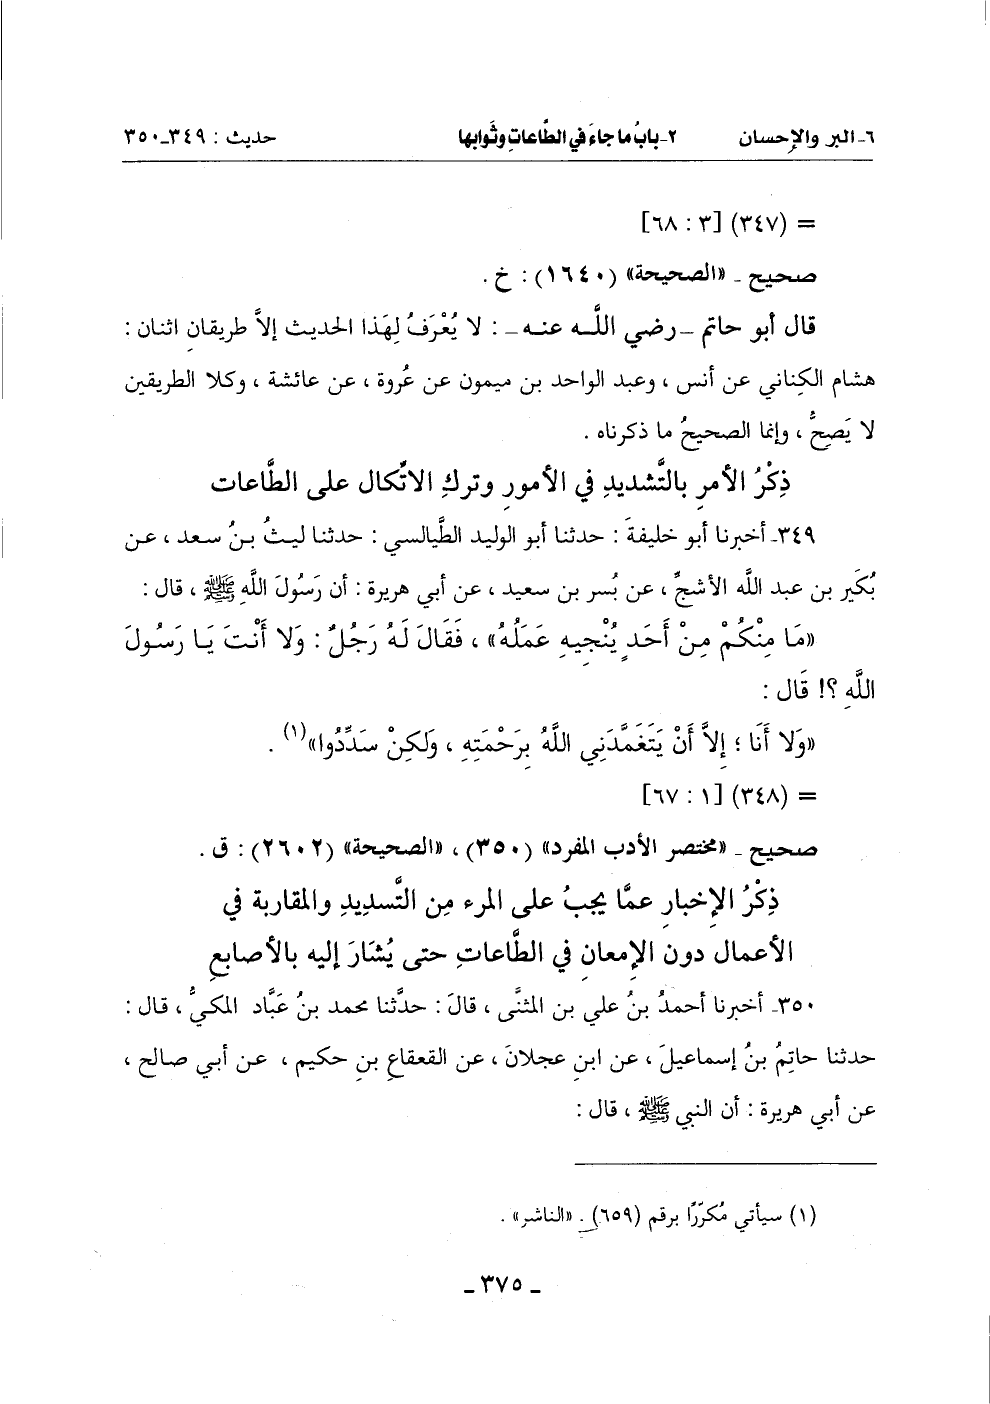 ٦ـ البر والإحسان ٢ـ بابُ ما جاءَ في الطَّاعاتِ وثَوابها حديث : ٣٤٩ـ٣٥٠
= (٣٤٧) [٣ : ٦٨]
صحيح ـ «الصحيحة» (١٦٤٠) : خ .
قال أبو حاتم ـ رضي اللَّـه عنـه ـ : لا يُعْرَفُ لِهَذا الحديث إلاَّ طريقانِ اثنان :
هشام الكِناني عن أنس ، وعبد الواحد بن ميمون عن عُروة ، عن عائشة ، وكلا الطريقين
لا يَصِحُّ ، وإنما الصحيحُ ما ذكرناه .
ذِكْرُ الأمرِ بالتَّشديدِ في الأمورِ وتركِ الاتِّكال على الطَّاعات
٣٤٩ـ أخبرنا أبو خليفةَ : حدثنا أبو الوليد الطَّيالسي : حدثنا ليثُ بـنُ سعد ، عـن
بُكَير بن عبد اللَّه الأشجِّ ، عن بُسر بن سعيد ، عن أبي هريرة : أن رَسُولَ اللَّهِ ﷺ ، قال :
«مَا مِنْكُمْ مِـنْ أَحَدٍ يُنْجِيهِ عَمَلُهُ» ، فَقَالَ لَـهُ رَجُلٌ : وَلا أَنْتَ يَـا رَسُـولَ
اللَّهِ ؟! قَال :
«وَلا أَنَا ؛ إلاَّ أَنْ يَتَغَمَّدَنِي اللَّهُ بِرَحْمَتِهِ ، وَلَكِنْ سَدِّدُوا»(١) .
= (٣٤٨) [١ : ٦٧]
صحيح ـ «مختصر الأدب المفرد» (٣٥٠) ، «الصحيحة» (٢٦٠٢) : ق .
ذِكْرُ الإخبارِ عمَّا يجبُ على المرء مِن التَّسديدِ والمقاربة في
الأعمال دون الإمعان في الطَّاعاتِ حتى يُشَارَ إليه بالأصابعِ
٣٥٠ـ أخبرنا أحمدُ بنُ علي بن المثنَّى ، قالَ : حدَّثنا محمد بنُ عَبَّاد المكيُّ ، قال :
حدثنا حاتِمُ بنُ إسماعيلَ ، عن ابنِ عجلانَ ، عن القعقاعِ بنِ حكيم ، عـن أبـي صالح ،
عن أبي هريرة : أن النبي ﷺ ، قال :
(١) سيأتي مُكرّرًا برقم (٦٥٩) . «الناشر» .
ـ ٣٧٥ ـ